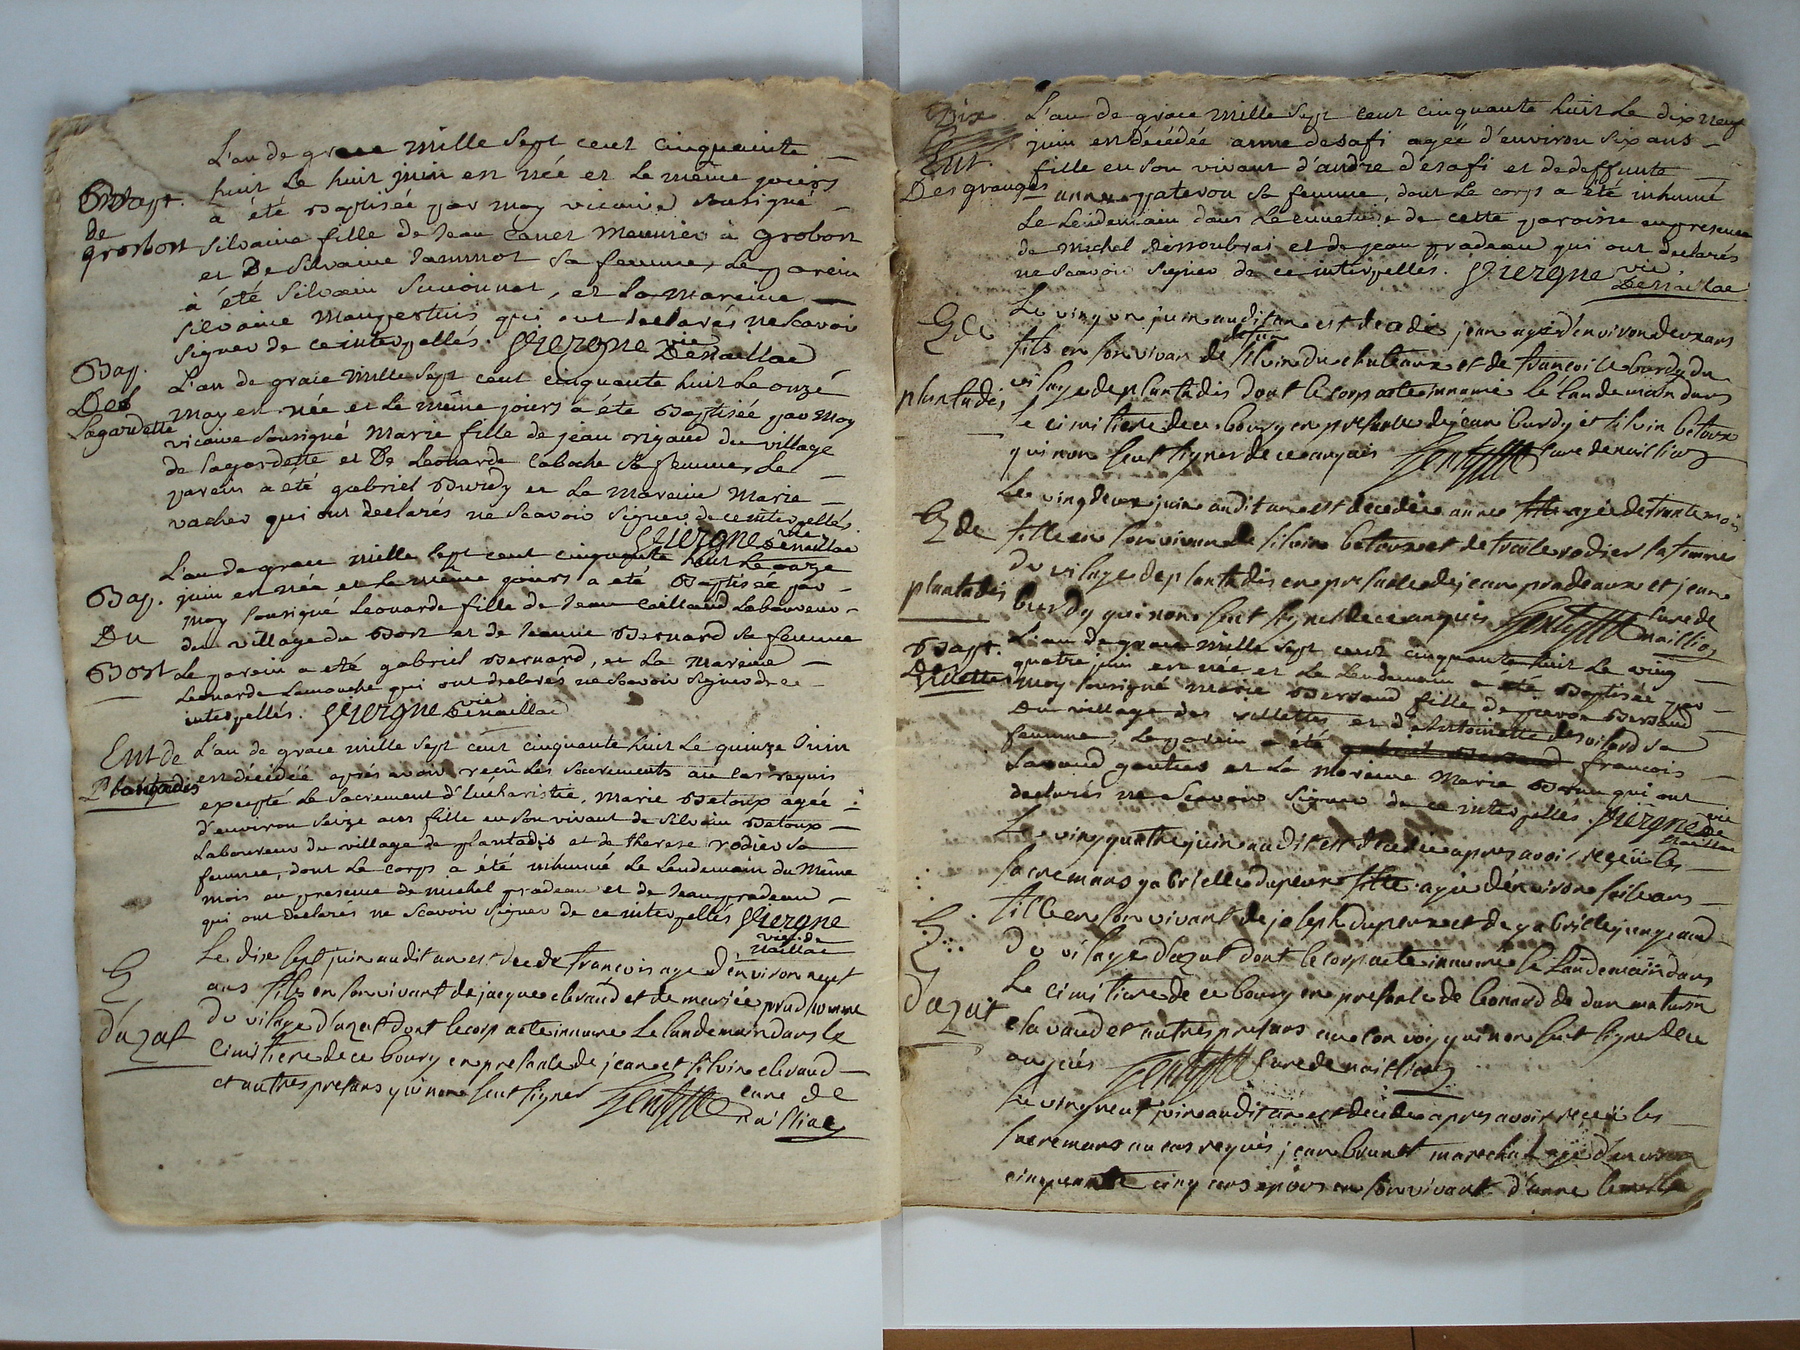 Bapt.
de
grosbort
L'an de grace mille sept cent cinquante
huit le huit juin est née et le même jours
a été Baptisée par moy vicaire sousigné
silvaine fille de Jean Meunier à grobort
et De silvaine Jammot sa femme, Le parein
à été silvain, et la mareine
silvaine qui ont declarés ne scavoir
signer de ce interpellés. vic
Denaillac
Bap.
Des
Lagardette
L'an de grace mille sept cent cinquante huit Le onze
may est née et le même jours a été Baptisée par moy
vicaire sousigné Marie fille de jean origaud du village
de Lagardette et De Leonarde Caboche sa femme, Le
parein a été gabriel Burdy et La Mareine Marie
vacher qui ont declarés ne scavoir signer de ce interpellés
vic
Denaillac
Bap.
Du
Bost
L'an de grace mille sept cent cinquante huit Le onze
juin est née et le même jours a été Baptisée par
moy sousigné Leonarde fille de Jean Caillaud Laboureur
du village du Bost et de Jeanne Bernard sa femme
Le parein a été gabriel Bernard, et La Mareine
Leonarde Lamouche qui ont declarés ne scavoir signer de ce
interpellés. vic
Denaillac
Ent de
Plantadis
L'an de grace mille sept cent cinquante huit Le quinze Juin
est décédéé aprés avoir reçû les sacrements au cas requis
excepté Le sacrement d'Eucharistie, Marie Betoux agée
d'environ seize ans fille en son vivant de silvain Betoux
Laboureur du village de plantadis et de therese rodier sa
femme, dont Le corps a été inhumé Le Lendemain du Même
mois en presence de michel pradeau et de Jean pradeau
qui ont declarés ne scavoir signer de ce interpellés
vic. de
naillac
E
d'azat
Le dix sept juin audit an est decede francois age d'environ neuf
ans fils en son vivant de jacque clavaud et de marie prudhomme
du vilage d'azat dont le corp a ete innume le landemain dans le
cimitiere de ce bourg en presance de jean et silvin clavaud
et autres presans qui non seut signer cure de
nailliac
Dix
Ent.
Des granges
L'an de grace mille sept cent cinquante huit Le dix neuf
juin est décédée anne desafi agée d'environ six ans
fille en son vivant d'andre desafi et de deffunte
anne pateron sa femme, dont Le corps a été inhumé
Le Lendemain dans Le cimetiere de cette paroisse en presence
de michel et de jean pradeau qui ont declarés
ne scavoir signer de ce interpellés. vic.
Denaillac
E de
plantadis
Le vingt un juin audit an est decede jean age d'environ deux ans
fils en son vivan de defun silvin duchateaux et de francoise burdy du
vilage de plantadis dont le corp a ete innumé le landemain dans
le cimitiere de ce bourg en presance de jean burdy et silvin betoux
qui non seut signer de ce anquis cure de nailliac
E de
plantadis
Le vingt deux juin audit an est decedée anne agée de trante mois
fille en son vivan de silvin betoux et de rodier sa femme
du vilage de plantadis en presance de jean pradeaux et jean
burdy qui non seut signer de ce anquis cure de
nailliac
Bapt.
Villettes
L'an de grace mille sept cent cinquante huit Le ving
quatre juin est née et Le Lendemain a été Baptisée par
moy sousigné Marie Bersaud fille de pierre Bersaud
Du village des villettes et d'Antoinette desvilard sa
femme, Le parein a été francois
gautier et La Mareine Marie Brun qui ont
declarés ne scavoir signer de ce interpellés. vic
de
naillac
E
d'azat
Le vingt quatre juin audit an est decedée apres avoir reçeü les
sacremans gabrielle duperux fille agée d'environ
fille en son vivant de joseph duperux et de gabrielle jangeaud
du vilage d'azat dont le corp a ete innumé le landemain dans
Le cimitiere de ce bourg en presance de leonard de dun maturin
clavaud et autres presans au convoy qui non seut signer de ce
anquis cure de nailliac
Le vingt neuf juin audit an est decede apres avoir reçeü les
sacremans au cas requis jean brunet marechal age d'environ
cinquante cinq ans epoux en son vivant d'anne